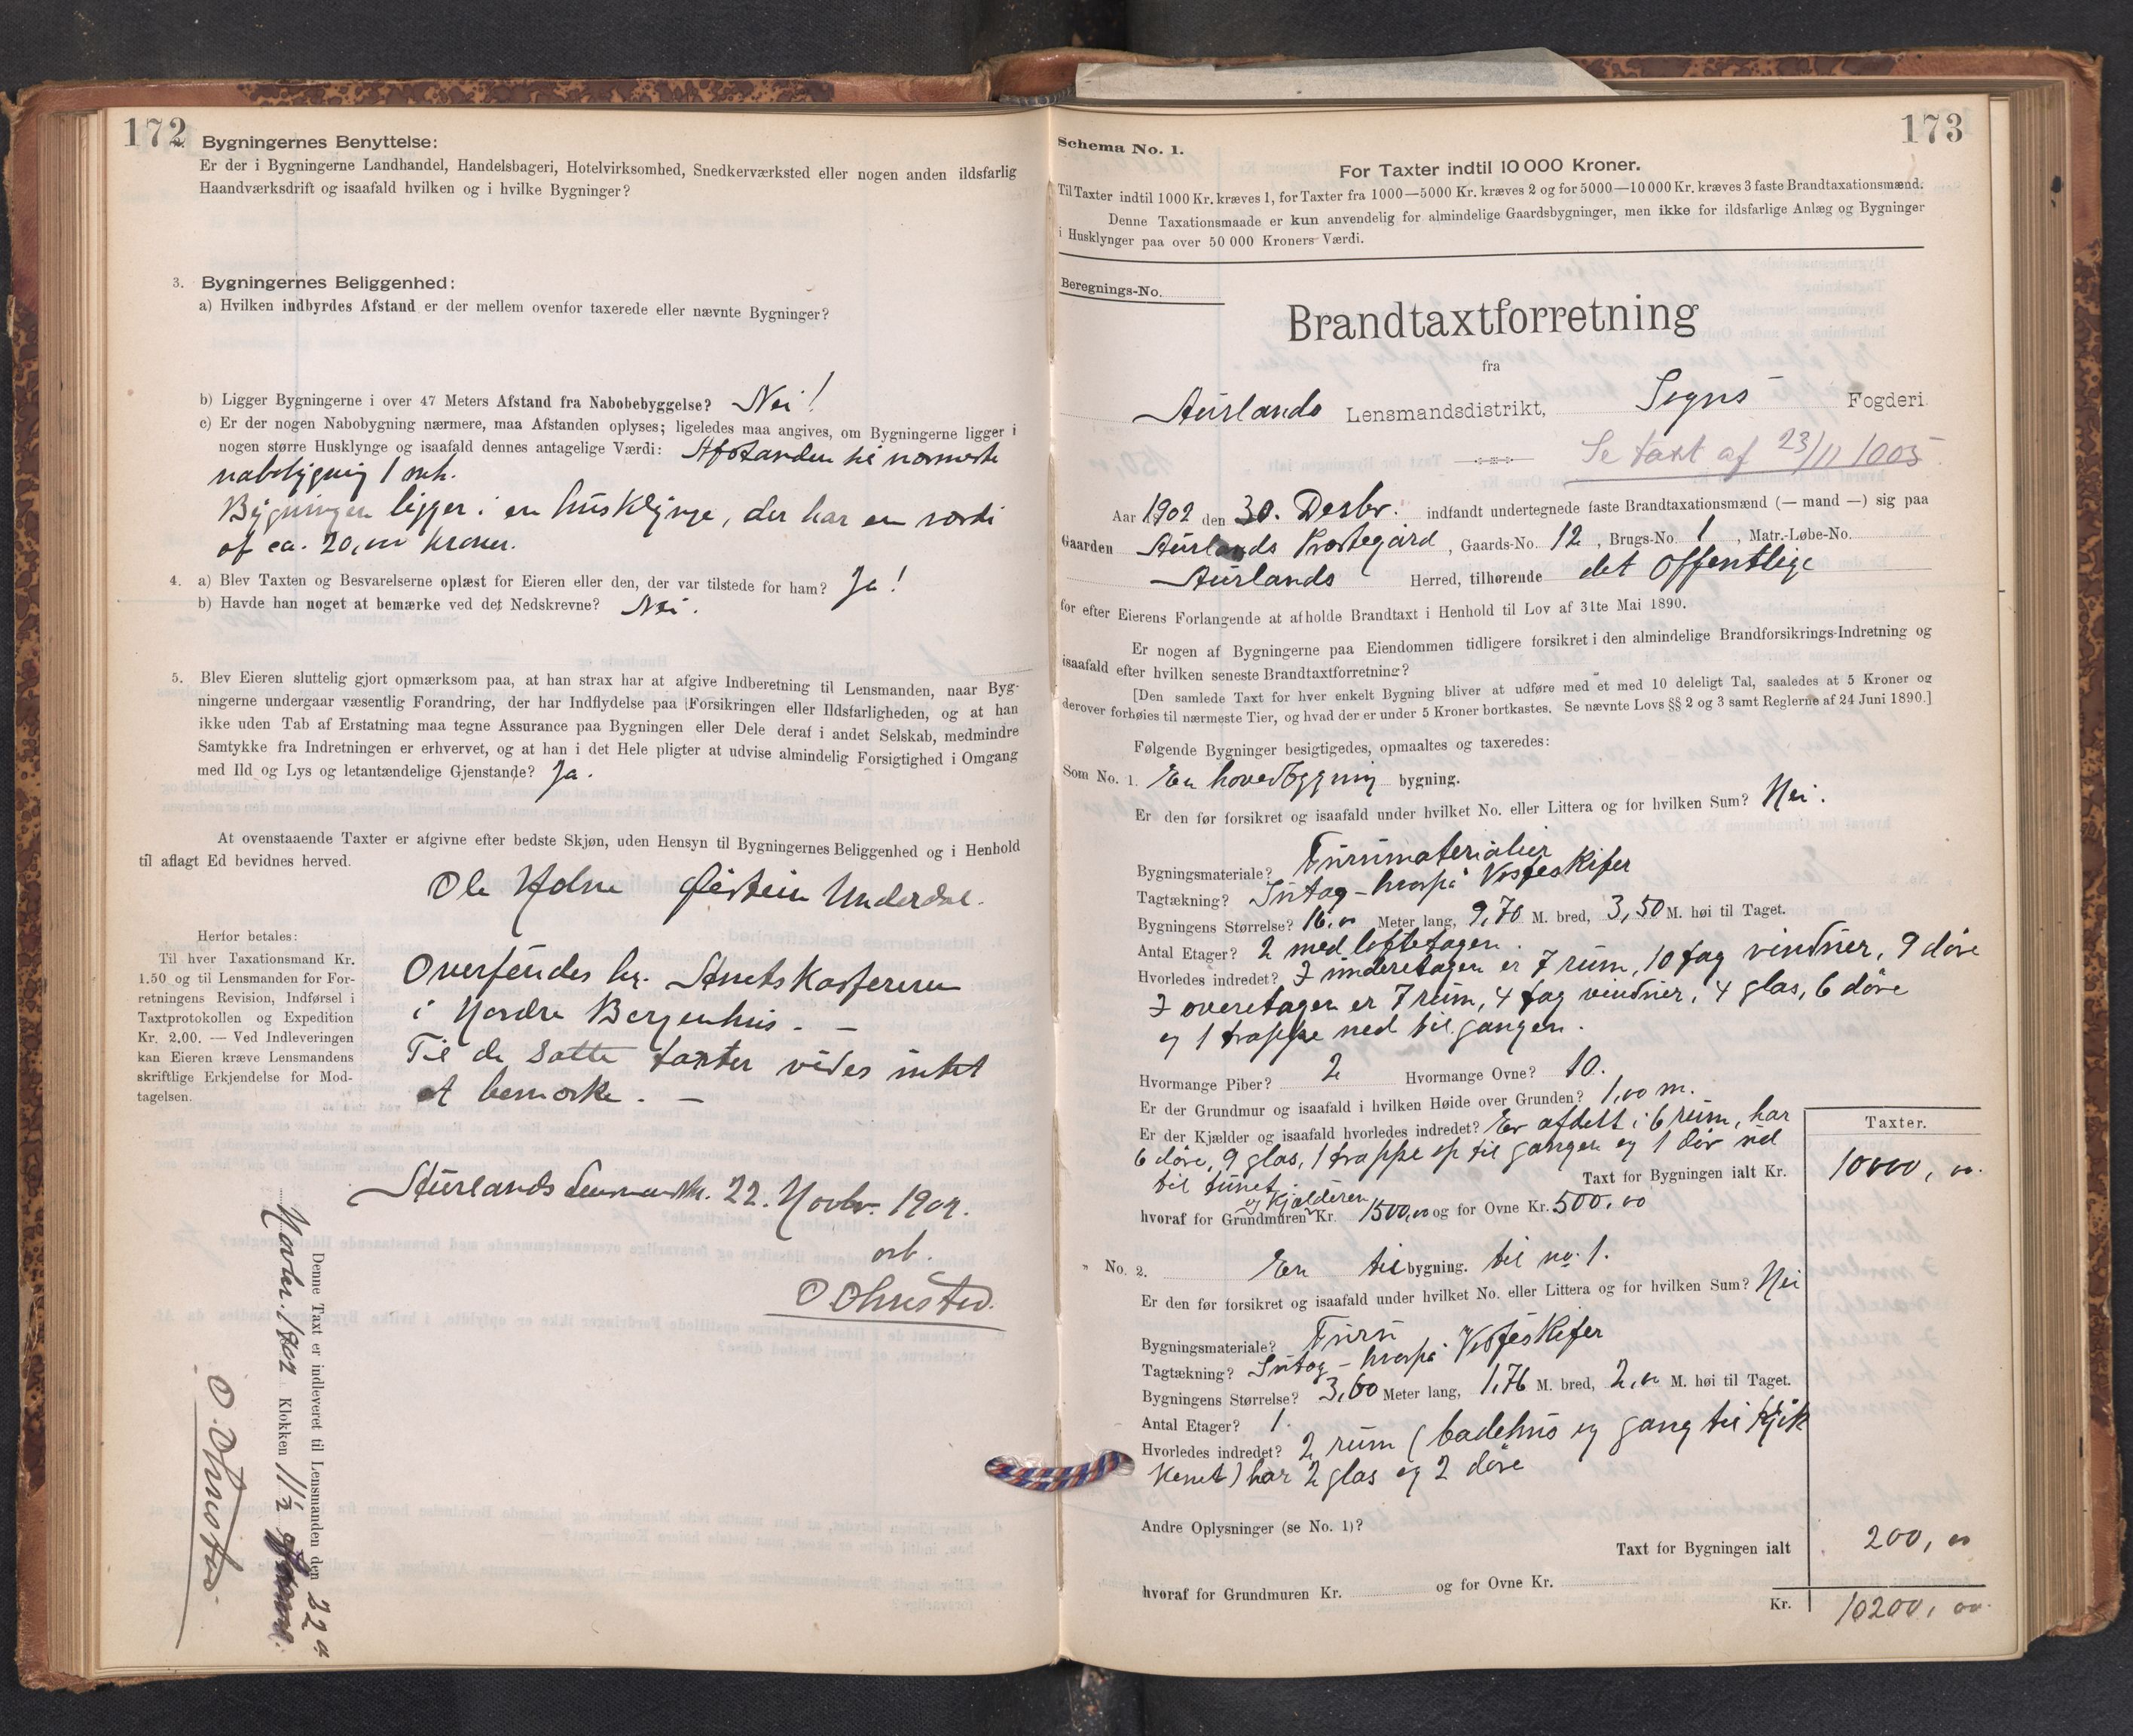 172
Bygningernes Benyttelse:
Er der i Bygningerne Landhandel, Handelsbageri, Hotelvirksomhed, Snedkerværksted eller nogen anden ildsfarlig
Haandværksdrift og isaafald hvilken og i hvilke Bygninger?
3. Bygningernes Beliggenhed:
a) Hvilken indbyrdes Afstand er der mellem ovenfor taxerede eller nævnte Bygninger?
b) Ligger Bygningerne i over 47 Meters Afstand fra Nabobebyggelse? Nei!
c) Er der nogen Nabobygning nærmere, maa Afstanden oplyses; ligeledes maa angives, om Bygningerne ligger i
nogen større Husklynge og isaafald dennes antagelige Værdi: Afstanden til nærmeste
nabobygnig 1 mtr.
Bygningen ligger i en husklynge, der har en værdi
af ca. 20,000 Kroner.
4. a) Blev Taxten og Besvarelserne oplæst for Eieren eller den, der var tilstede for ham? Ja!
b) Havde han noget at bemærke ved det Nedskrevne? Nei.
5. Blev Eieren sluttelig gjort opmærksom paa, at han strax har at afgive Indberetning til Lensmanden, naar Byg-
ningerne undergaar væsentlig Forandring, der har Indflydelse paa Forsikringen eller Ildsfarligheden, og at han
ikke uden Tab af Erstatning maa tegne Assurance paa Bygningen eller Dele deraf i andet Selskab, medmindre
Samtykke fra Indretningen er erhvervet, og at han i det Hele pligter at udvise almindelig Forsigtighed i Omgang
med Ild og Lys og letantændelige Gjenstande? Ja.
At ovenstaaende Taxter er afgivne efter bedste Skjøn, uden Hensyn til Bygningernes Beliggenhed og i Henhold
til aflagt Ed bevidnes herved.
Ole Holm Øistein Underdal.
Herfor betales:
Til hver Taxationsmand Kr.
1.50 og til Lensmanden for For-
retningens Revision, Indførsel i
Taxtprotokollen og Expedition
Kr. 2.00. — Ved Indleveringen
kan Eieren kræve Lensmandens
skriftlige Erkjendelse for Mod-
tagelsen.
Oversendes hr. Amtskasereren
i Nordre Bergenhus. —
Til de satte taxter vides intet
at bemærke. —
Aurlands Lensmandsk. 22. Novbr. 1902.
erb.
O Ohnsted.
Denne Taxt er indleveret til Lensmanden den 22de
Novbr. 1902 Klokken 11½
O. Ohnsted
173
Schema No. 1.
For Taxter indtil 10 000 Kroner.
Til Taxter indtil 1000 Kr. kræves 1, for Taxter fra 1000—5000 Kr. kræves 2 og for 5000—10 000 Kr. kræves 3 faste Brandtaxationsmænd.
Denne Taxationsmaade er kun anvendelig for almindelige Gaardsbygninger, men ikke for ildsfarlige Anlæg og Bygninger
i Husklynger paa over 50 000 Kroners Værdi.
Beregnings-No.
Brandtaxtforretning
fra
Aurlands Lensmandsdistrikt, Sogns Fogderi.
Se taxt af 23/11 1005
Aar 1902 den 30. Desbr. indfandt undertegnede faste Brandtaxationsmænd (— mand —) sig paa
Gaarden Aurlands Prestegård, Gaards-No. 12, Brugs-No. 1, Matr.-Løbe-No.
Aurlands Herred, tilhørende det Offentlige
for efter Eierens Forlangende at afholde Brandtaxt i Henhold til Lov af 31te Mai 1890.
Er nogen af Bygningerne paa Eiendommen tidligere forsikret i den almindelige Brandforsikrings-Indretning og
isaafald efter hvilken seneste Brandtaxtforretning?
[Den samlede Taxt for hver enkelt Bygning bliver at udføre med et med 10 deleligt Tal, saaledes at 5 Kroner og
derover forhøies til nærmeste Tier, og hvad der er under 5 Kroner bortkastes. Se nævnte Lovs §§ 2 og 3 samt Reglerne af 24 Juni 1890.]
Følgende Bygninger besigtigedes, opmaaltes og taxeredes:
Som No. 1. En hovedbygnig bygning.
Er den før forsikret og isaafald under hvilket No. eller Littera og for hvilken Sum? Nei.
Bygningsmateriale? Furumaterialier
Tagtækning? Sutag - hverpå Vosseskifer
Bygningens Størrelse? 16,00 Meter lang, 9,70 M. bred, 3,50 M. høi til Taget.
Antal Etager? 2 med loftetagen.
Hvorledes indredet? I underetagen er 7 rum, 10 fag vinduer, 9 døre
I overetagen er 7 rum, 4 fag vinduer, 4 glas, 6 døre
og 1 trappe ned til gangen.
Hvormange Piber? 2 Hvormange Ovne? 10.
Er der Grundmur og isaafald i hvilken Høide over Grunden? 1,00 m.
Er der Kjælder og isaafald hvorledes indredet? Er afdelt i 6 rum, har
6 døre, 9 glas, 1 trappe op til gangen og 1 dør ud
til tunet
Taxter.
Taxt for Bygningen ialt Kr. 10000,00
hvoraf for Grundmuren og kjælderen Kr. 1500,00 og for Ovne Kr. 500,00
" No. 2. En tilbygning. til no. 1.
Er den før forsikret og isaafald under hvilket No. eller Littera og for hvilken Sum? Nei
Bygningsmateriale? Furu
Tagtækning? Sutag - hverpå Vosseskifer
Bygningens Størrelse? 3,60 Meter lang, 1,76 M. bred, 2,00 M. høi til Taget.
Antal Etager? 1.
Hvorledes indredet? 2 rum (badehus og gang til kjøk
kenet) har 2 glas og 2 døre
Andre Oplysninger (se No. 1)?
Taxt for Bygningen ialt 200,00
hvoraf for Grundmuren Kr. og for Ovne Kr.
Kr. 10200,00